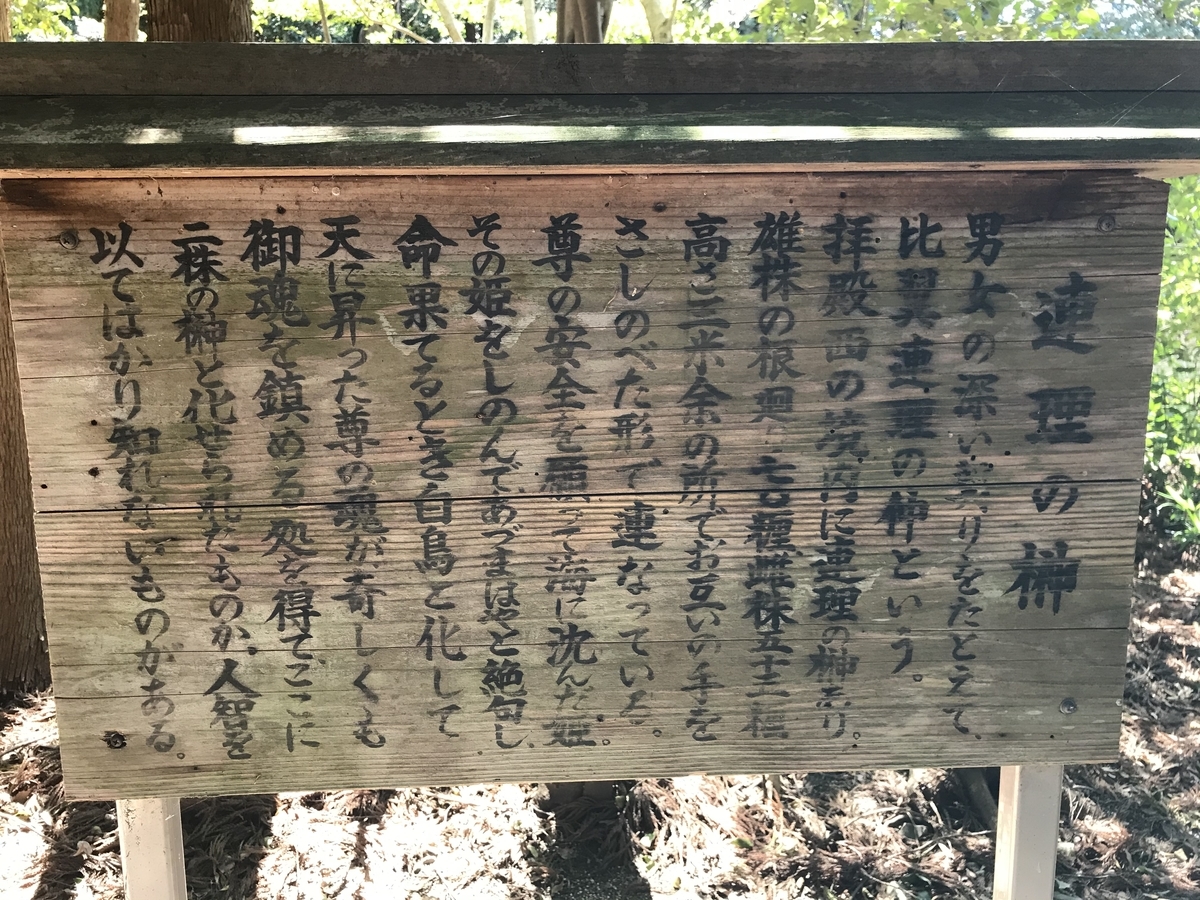 連理の榊
男女の深い契りをたとえて、
比翼連理の榊という。
拝殿西の境内に連理の榊あり。
雄株の根廻 七五糎雌株五十二糎
高さ三米余の所でお互いの手を
さしのべた形で連なっている。
尊の安全を願って海に沈んだ姫。
その姫をしのんであづまはやと絶句し、
命果てるとき白鳥と化して
天に昇った尊の魂が奇しくも
御魂を鎮める処を得てここに
二株の榊と化せられたものか、人智を
以てはかり知れないものがある。